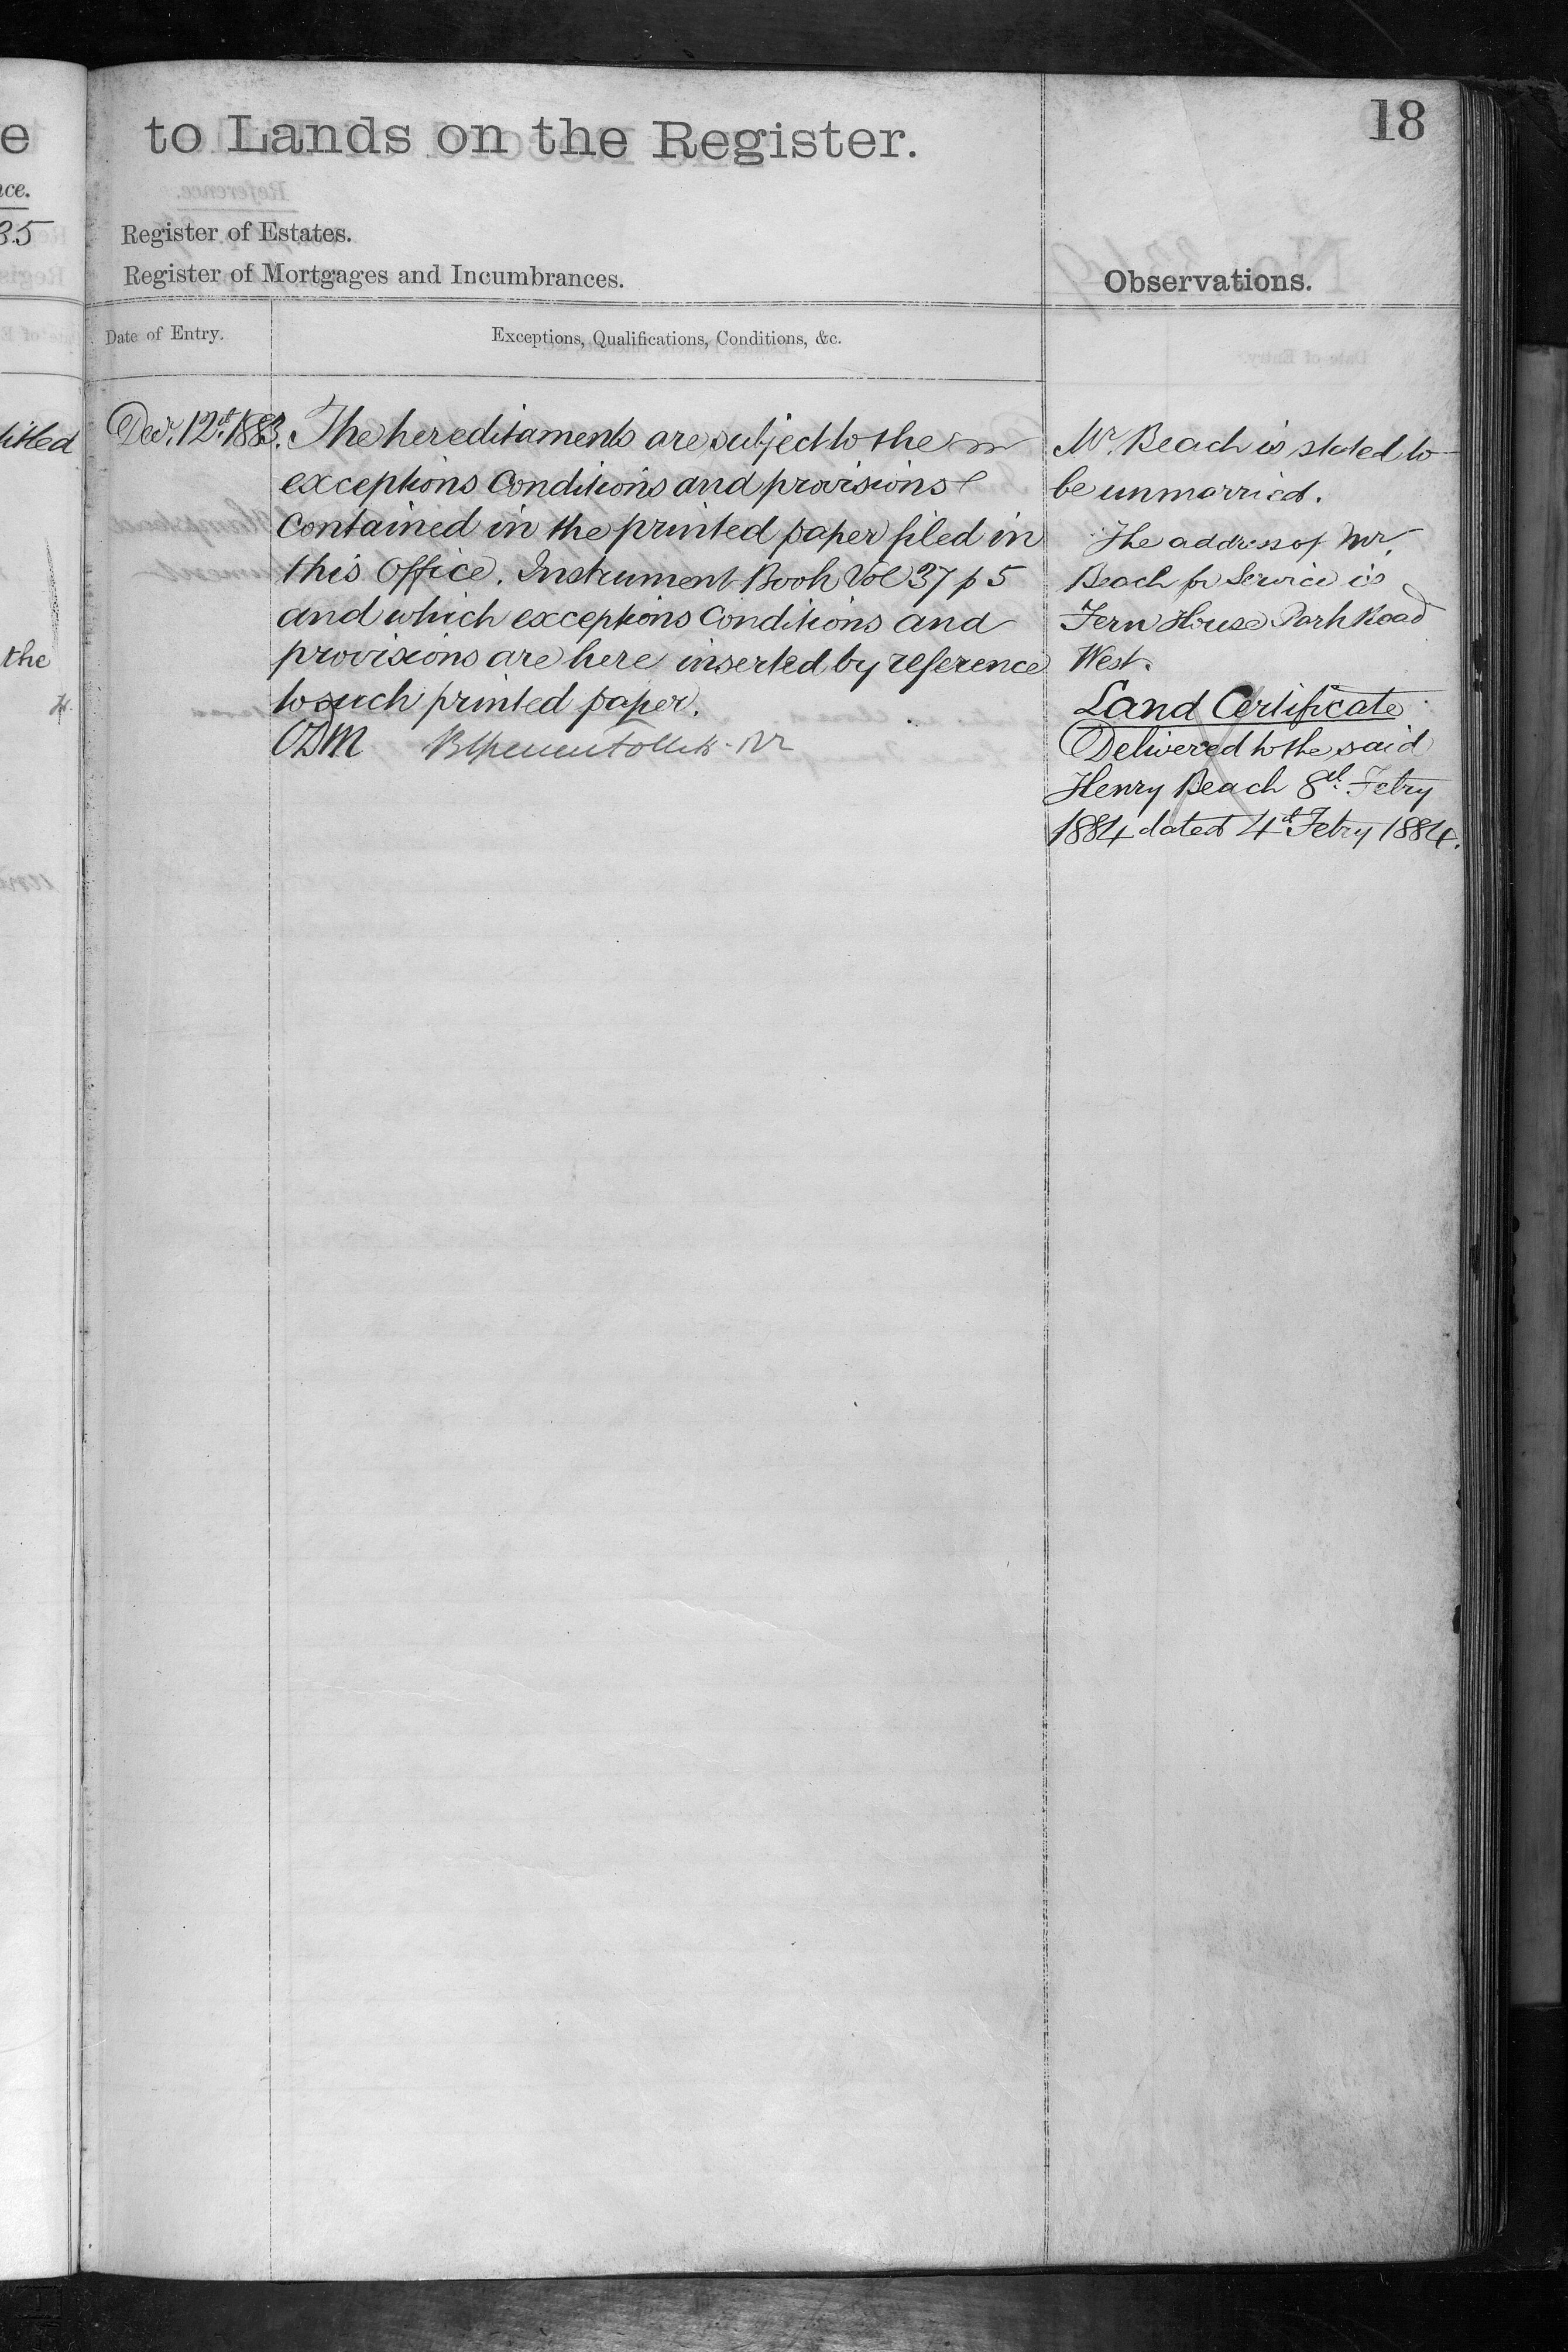 18
to Lands on the Register.
Register of Estates.
Register of Mortgages and Incumbrances.
Observations.
Date of Entry.
Exceptions, Qualifications, Conditions, &c.
Decr. 12th 1883. The hereditaments are subject to the
exceptions Conditions and provisions
Contained in the printed paper filed in
this Office. Instrument Book Vol 37 p 5
and which exceptions Conditions and
provisions are here inserted by reference
to such printed paper.
Mr. Beach is stated to
be unmarried.
The address of Mr.
Beach for Service is
Fern House Park Road
West.
Land Certificate
Delivered to the said
Henry Beach 8th Febry
1884 dated 4th Febry 1884.
e
ce.
35
titled
the